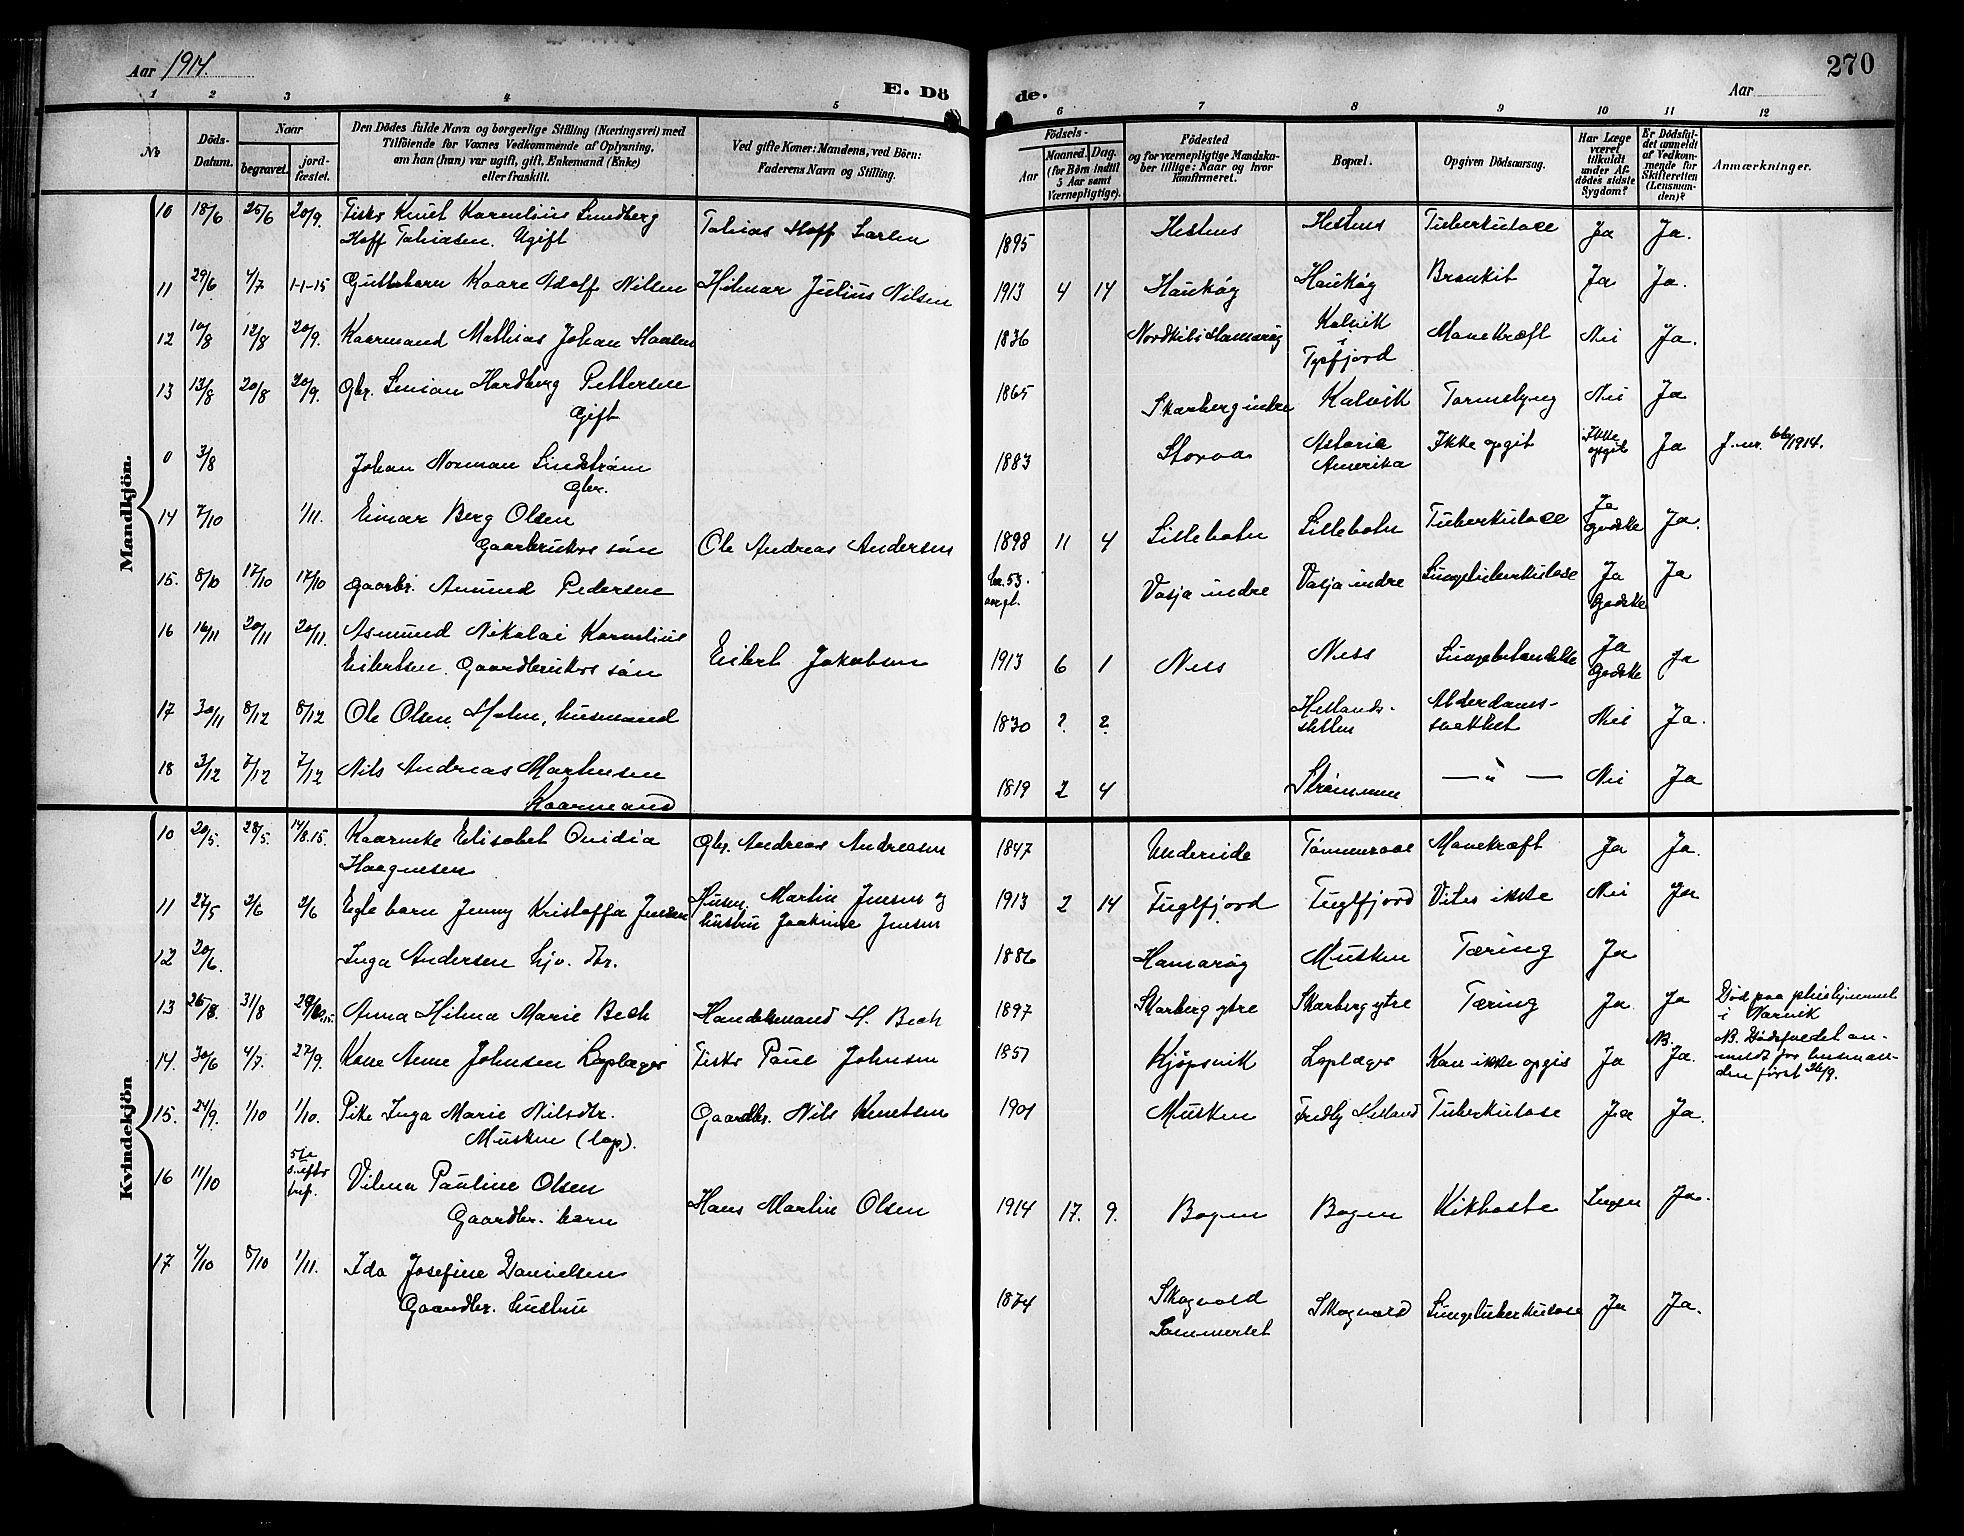 Aar 1914.
E. Dö
de.
Aar
270
1 2 3 4 5 6 7 8 9 10 11 12
Nr
Döds-Datum.
Naar
begravet.
jord-fæstet.
Den Dödes fulde Navn og borgerlige Stilling (Næringsvei) med
Tilföiende for Voxnes Vedkommende af Oplysning,
om han (hun) var ugift, gift, Enkemand (Enke)
eller fraskilt.
Ved gifte Koner: Mandens, ved Börn:
Faderens Navn og Stilling.
Födsels-
Aar
Maaned. Dag.
(for Börn indtil
5 Aar samt
Værnepligtige).
Födested
og for værnepligtige Mandska-
ber tillige: Naar og hvor
konfirmeret.
Bopæl.
Opgiven Dödsaarsag.
Har Læge
været
tilkaldt
under Af-
dödes sidste
Sygdom?
Er Dödsfal-
det anmeldt
af Vedkom-
mende for
Skifteretten
(Lensman-
den)?
Anmærkninger.
Mandkjön.
10 18/6 25/6 20/9. Fisker Knut Kornelius Lundberg
Hoff Tobiasen. Ugift Tobias Hoff Larsen 1895 Hestnes Hestnes Tuberkulose Ja Ja.
11 29/6 4/7 1-1-15 Guttebarn Kaare Adolf Nilsen Hilmar Julius Nilsen 1913 4 14 Haukøy Haukøy Bronkit Ja Ja.
12 10/8 12/8 20/9. Kaarmand Mathias Johan 1836 Nordkil i Hamarøy Kalvik
i
Tysfjord Mavekræft Nei Ja.
13 13/8 20/8 20/9. Gbr. Simion Hardberg Pettersen
Gift 1865 Skarberg indre Kalvik Tarmslyng Nei Ja
0 3/8 Johan Norman Lindstrøm
Gbr. 1883 Storvaa Astoria
Amerika Ikke opgit Ikke
opgit Ja J. nr. 66/1914.
14 7/10 1/11. Einar Berg Olsen
Gaarbrukers søn Ole Andreas Andersen 1898 11 4 Lillebotn Lillebotn Tuberkulose Ja
Godske Ja.
15. 8/10 17/10 17/10 Gaarbr. Amund Pedersen 53. Vasja indre Vasja indre Lungetuberkulose Ja
Godske Ja
16 16/11 20/11 20/11. Asmund Nikolai Kornelius
Eilertsen. Gaardbrukers søn Eilert Jakobsen 1913 6 1 Ness Ness Lungebetændelse Ja
Godske Ja
17 30/11 8/12 8/12 Ole Olsen Holm, husmand 1830 ? ? Hellands-
Alderdoms-
svækket Nei Ja.
18 3/12 7/12 7/12 Nils Andreas Martinsen
Kaarmand 1819 2 4 Strømmen — " — Nei Ja
Kvindekjön
10 20/5. 28/5. 14/8.15. Kaarenke Elisabet Ovidia
Haagensen Gbr. Andreas Andreasen 1847 Undereide Tømmeraae Mavekræft Ja Ja.
11 27/5 2/6 2/6 Egte barn Jenny Kristoffa Jensen Husm. Martin Jensen og
hustru Joakime Jensen 1913 2 14 Fuglfjord Fuglfjord Vites ikke Nei Ja
12 20/6. Inga Andersen hjv. dtr. 1886 Hamarøy Musken Tæring Ja
13 26/8. 31/8 Anna Hilma Marie Bech Handelsmand H. Bech 1897 Skarberg ytre Skarberg ytre Tæring Ja Ja Død paa pleiehjemmet
i Narvik
14. 30/6 4/7. 27/9. Kone Anne Johnsen Leplæger Fisker Paul Johnsen 1851 Kjøpsvik Leplæger Kan ikke opgis Ja NB.
Ja. NB. Dødsfaldet an-
meldt for lensman-
den først 26/9.
15. 24/9. 1/10 1/10. Pike Inga Marie Nilsdtr.
Musken (lap). Gaardbr. Nils Knutsen 1901 Musken Fredly Helland Tuberkulose Ja Ja.
16 11/10 Vilma Pauline Olsen
Gaardbr. barn Hans Martin Olsen 1914 17. 9. Bogen Bogen Kikhoste Ingen Ja.
17 4/10 8/10 1/11. Ida Josefine Danielsen
Gaardbr. hustru 1874 Skogvold
Sommerset Skogvold Lungetuberkulose Ja Ja.